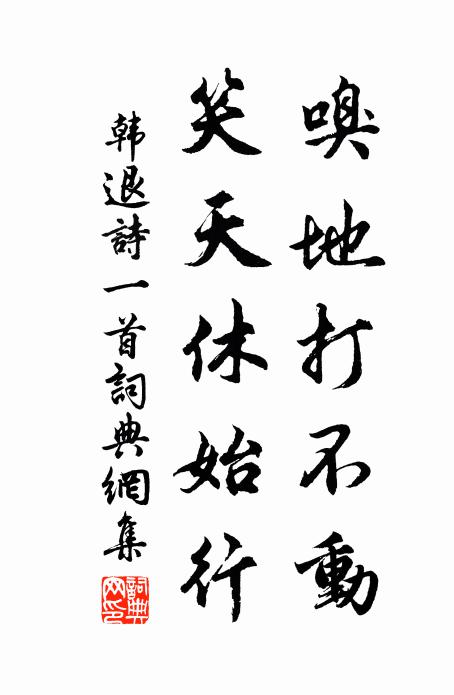 嗅地打不動
笑天休始行
韩退詩一首詞典網集
詞典
网印